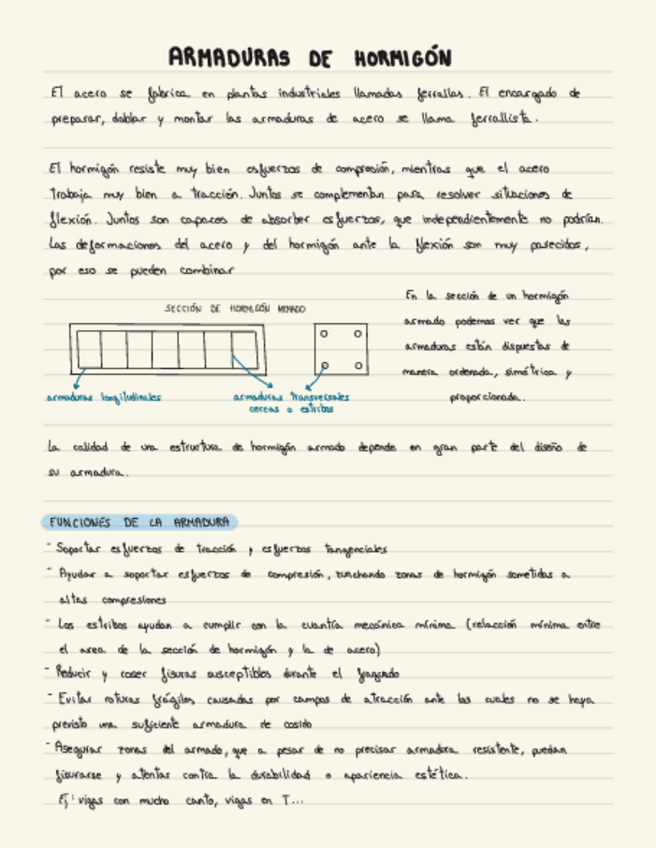 ARMADURAS DE HORMIGÓN
El acero se fabrica en plantas industriales llamadas ferrallas. El encargado de
preparar, doblar y montar las armaduras de acero se llama ferrallista.
El hormigón resiste muy bien esfuerzos de compresión, mientras que el acero
trabaja muy bien a tracción. Juntos se complementan para resolver situaciones de
flexión. Juntos son capaces de absorber esfuerzos, que independientemente no podrían.
Las deformaciones del acero y del hormigón ante la flexión son muy parecidos,
por eso se pueden combinar
SECCIÓN DE HORMIGÓN ARMADO
armaduras longitudinales
armaduras transversales
cercos o estribos
En la sección de un hormigón
armado podemos ver que las
armaduras están dispuestas de
manera ordenada, simétrica y
proporcionada.
La calidad de una estructura de hormigón armado depende en gran parte del diseño de
su armadura.
FUNCIONES DE LA ARMADURA
- Soportar esfuerzos de tracción y esfuerzos tangenciales
- Ayudar a soportar esfuerzos de compresión, zunchando zonas de hormigón sometidas a
altas compresiones
- Los estribos ayudan a cumplir con la cuantía mecánica mínima (relación mínima entre
el area de la sección de hormigón y la de acero)
- Reducir y coser fisuras susceptibles durante el fraguado
- Evitar roturas frágiles causadas por campos de atracción ante las cuales no se haya
previsto una suficiente armadura de cosido
- Asegurar zonas del armado, que a pesar de no precisar armadura resistente, puedan
fisurarse y atentas contra la durabilidad o apariencia estética.
Ej: vigas con mucho canto, vigas en T...